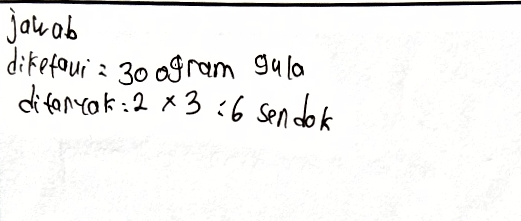 jawab
diketaui = 300 gram gula
ditanyak : 2 x 3 : 6 sendok